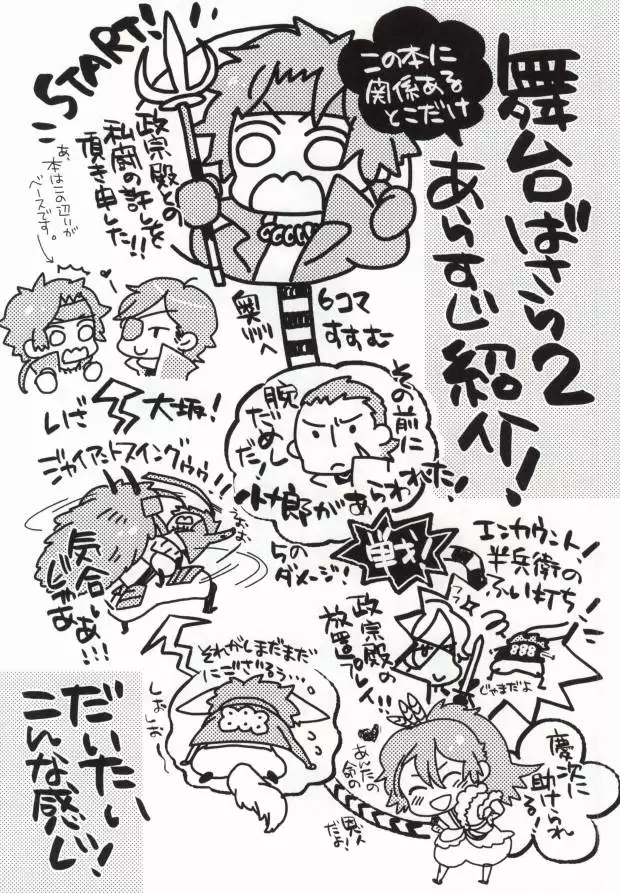 舞台ばさら2
あらすじ紹介!
この本に
関係ある
とこだけ
START!
政宗殿との
私闘の許しを
頂き申した!!
あ、本はこの辺いが
ベースです。
奥州へ
6コマ
すすむ
いざ
大坂!
その前に
腕だめしだ!
小十郎があらわれた!
ジャイアントスイングゥゥ!!
気合いじゃあ
あ!!!
戦!
5のダメージ!
エンカウント!
半兵衛の
ふい打ち!
政宗殿の
放置プレイ!!
じゃまだよ
888
それがしまだまだ
にござるぅぅ…
しおしお
慶次に
助けられる!
あんたの
命の
恩人
だよ!
だいたい
こんな感じ!